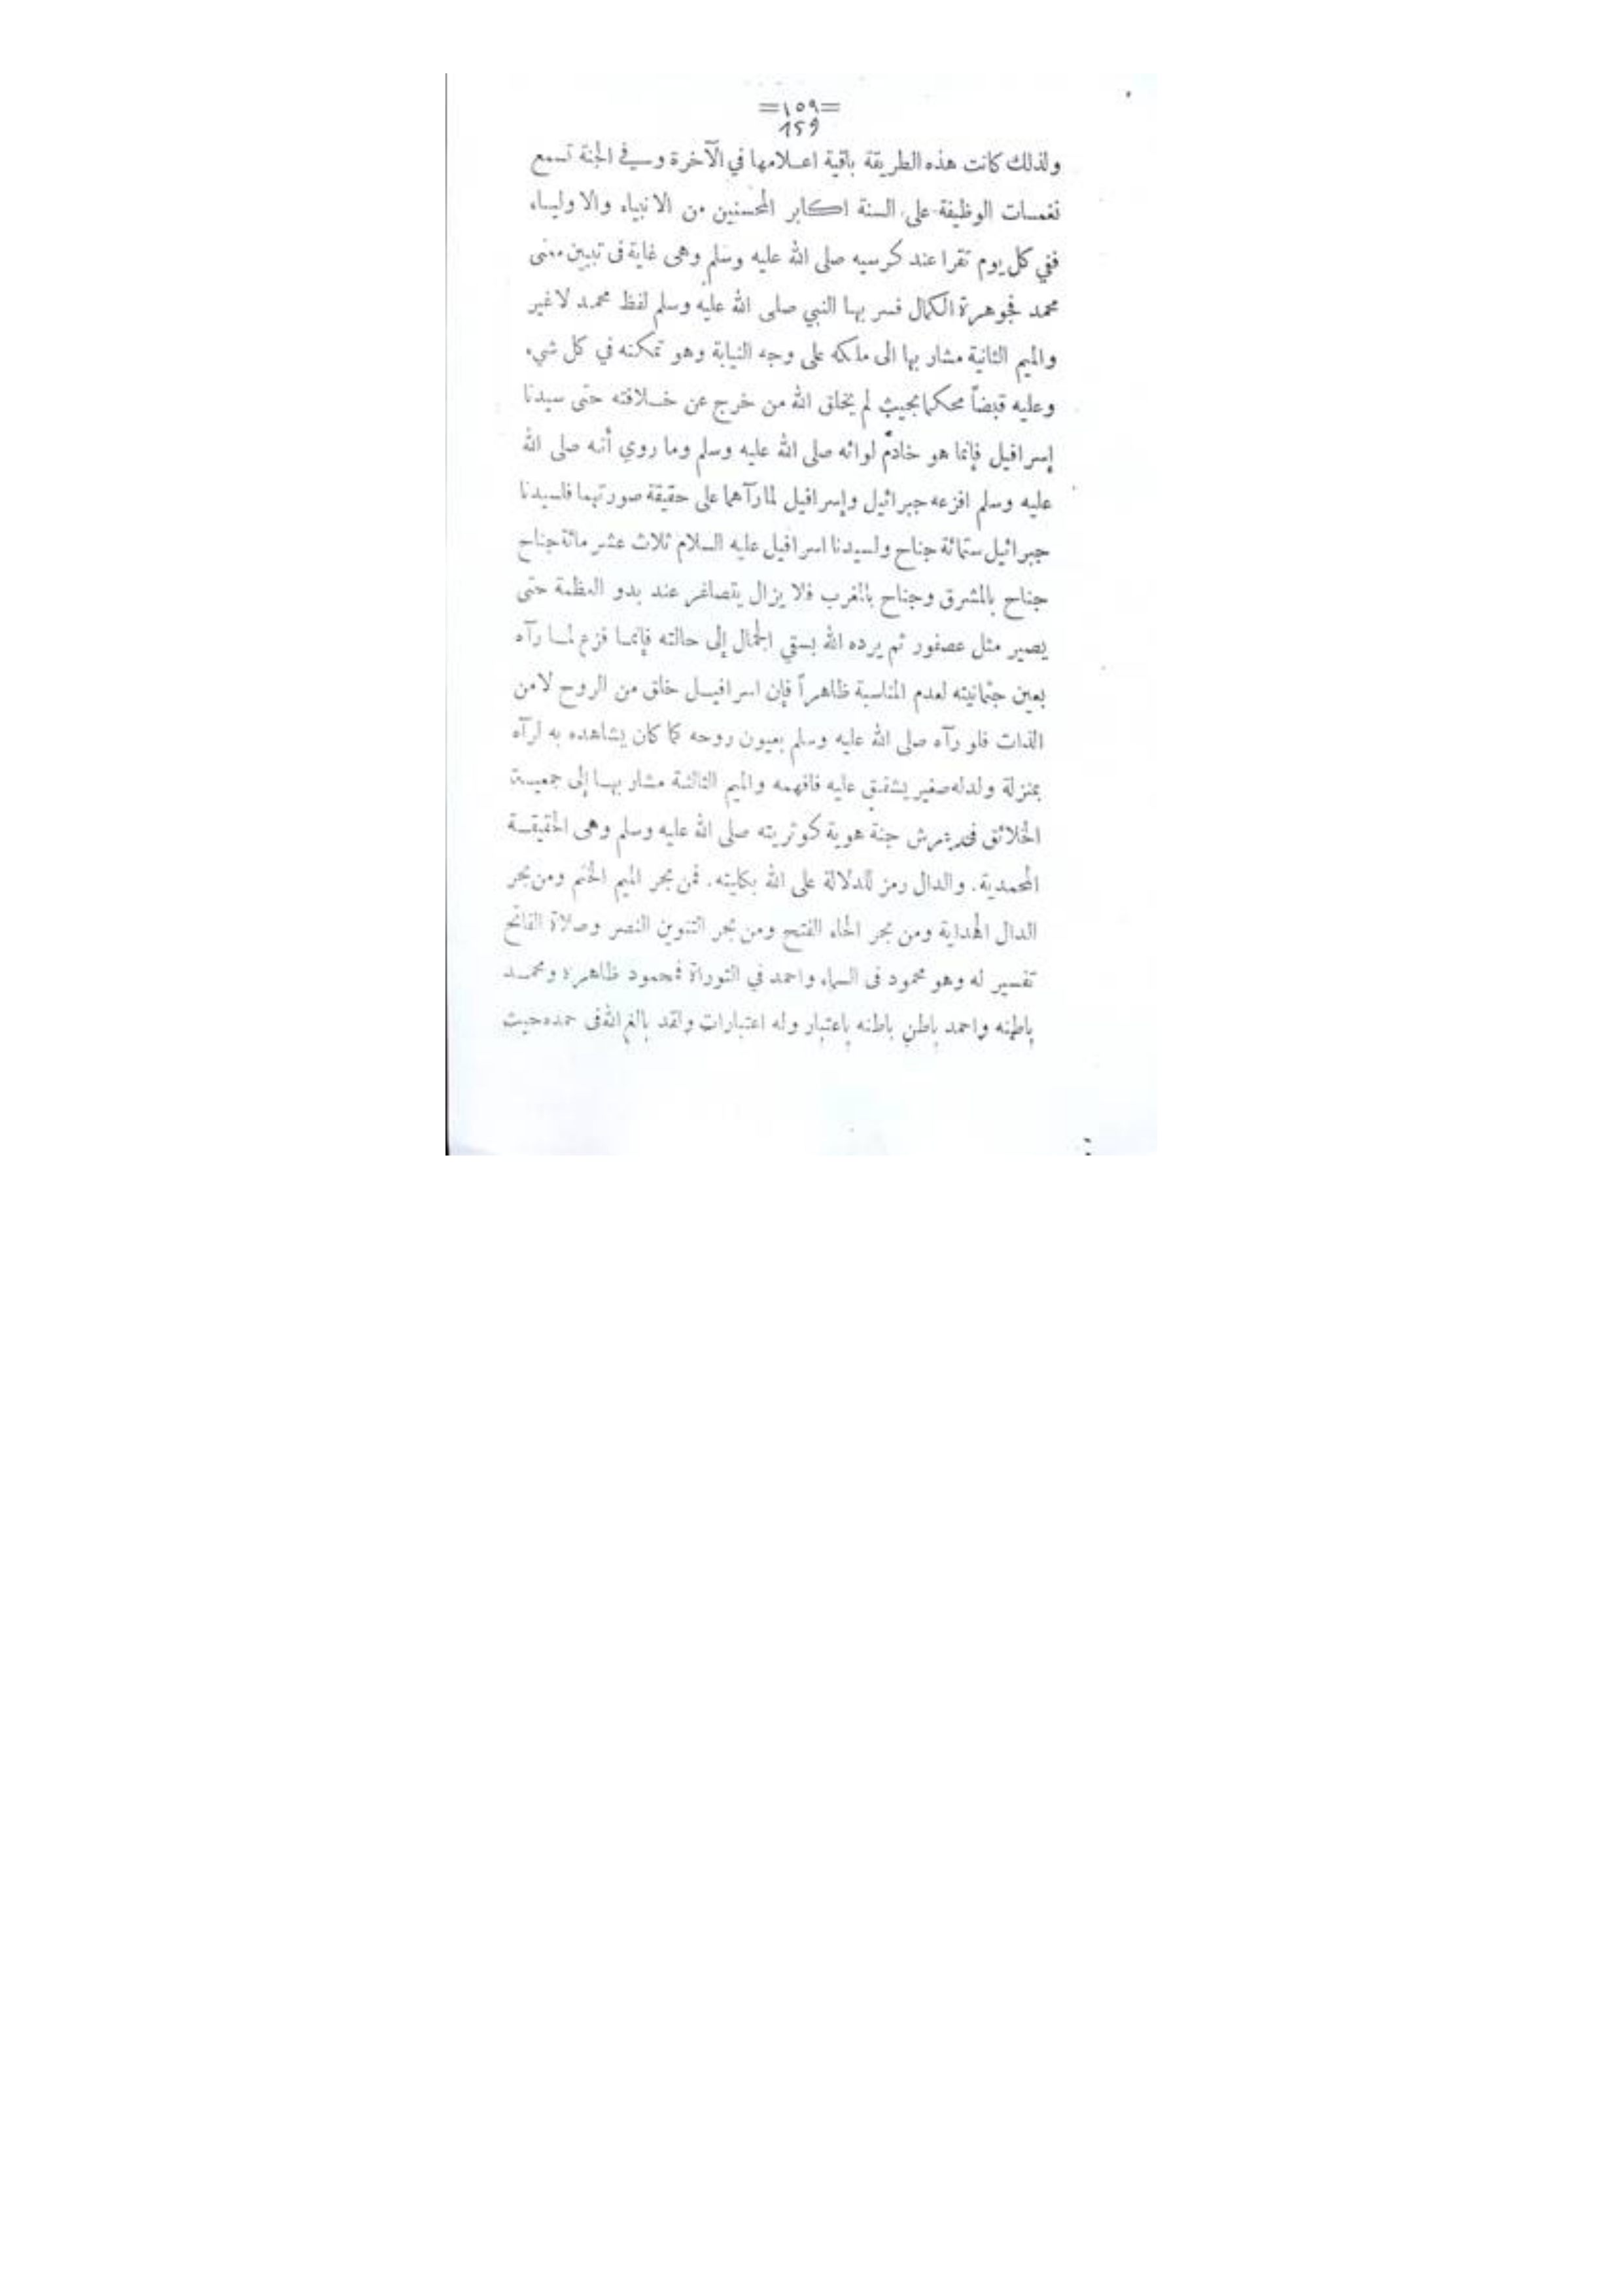 =١٥٩=
159
ولذلك كانت هذه الطريقة باقية اعلامها في الآخرة وفي الجنة تسمع
نغمات الوظيفة على السنة اكابر المحسنين من الانبياء والاولياء
ففي كل يوم تقرا عند كرسيه صلى الله عليه وسلم وهى غاية فى تبيين معنى
محمد فجوهرة الكمال فسر بها النبي صلى الله عليه وسلم لفظ محمد لا غير
والميم الثانية مشار بها الى ملكه على وجه النيابة وهو تمكنه في كل شيء
وعليه قبضاً محكما بحيث لم يخلق الله من خرج عن خلافته حتى سيدنا
إسرافيل فإنما هو خادم لوائه صلى الله عليه وسلم وما روي أنه صلى الله
عليه وسلم افزعه جبرائيل وإسرافيل لما رآهما على حقيقة صورتهما فلسيدنا
جبرائيل ستمائة جناح ولسيدنا اسرافيل عليه السلام ثلاث عشر مائة جناح
جناح بالمشرق وجناح بالمغرب فلا يزال يتصاغر عند بدو العظمة حتى
يصير مثل عصفور ثم يرده الله بسقي الجمال إلى حالته فإنما فزع لما رآه
بعين جثمانيته لعدم المناسبة ظاهراً فإن اسرافيل خلق من الروح لا من
الذات فلو رآه صلى الله عليه وسلم بعيون روحه كما كان يشاهده به لرآه
بمنزلة ولد له صغير يشفق عليه فافهمه والميم الثالثة مشار بها إلى جمعية
الخلائق جنة هوية كوثريته صلى الله عليه وسلم وهى الحقيقة
المحمدية. والدال رمز للدلالة على الله بكليته. فمن بحر الميم الختم ومن بحر
الدال الهداية ومن بحر الحاء الفتح ومن بحر التنوين النصر وصلاة الفاتح
تفسير له وهو محمود فى السماء واحمد في التوراة فمحمود ظاهره ومحمد
باطنه واحمد باطن باطنه باعتبار وله اعتبارات ولقد بالغ الله فى حمده حيث